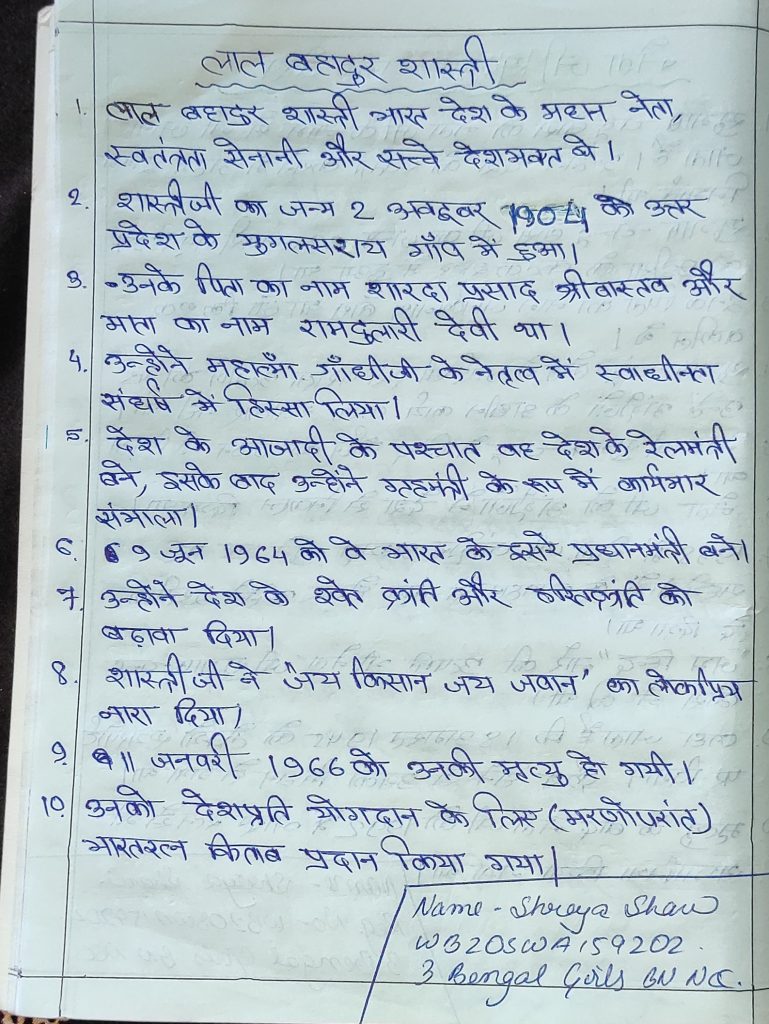 लाल बहादुर शास्त्री
1. लाल बहादुर शास्त्री भारत देश के महान नेता,
स्वतंत्रता सेनानी और सच्चे देशभक्त थे।
2. शास्त्रीजी का जन्म 2 अक्टूबर 1904 को उत्तर
प्रदेश के मुगलसराय गाँव में हुआ।
3. उनके पिता का नाम शारदा प्रसाद श्रीवास्तव और
माता का नाम रामदुलारी देवी था।
4. उन्होंने महात्माँ गाँधीजी के नेतृत्व में स्वाधीनता
संघर्ष में हिस्सा लिया।
5. देश के आजादी के पश्चात वह देश के रेलमंत्री
बने, इसके बाद उन्होंने गृहमंत्री के रूप में कार्यभार
संभाला।
6. 9 जून 1964 को वे भारत के दुसरे प्रधानमंत्री बने।
7. उन्होंने देश के श्वेत क्रांति और हरितक्रांति को
बढ़ावा दिया।
8. शास्त्रीजी ने "जय किसान जय जवान' का लोकप्रिय
नारा दिया।
9. 11 जनवरी 1966 को उनकी मृत्यु हो गयी।
10. उनको देशप्रति योगदान के लिए (मरणोपरांत)
भारतरत्न किताब प्रदान किया गया।
Name - Shreya Shaw
WB20SWA159202.
3 Bengal Girls BN NCC.